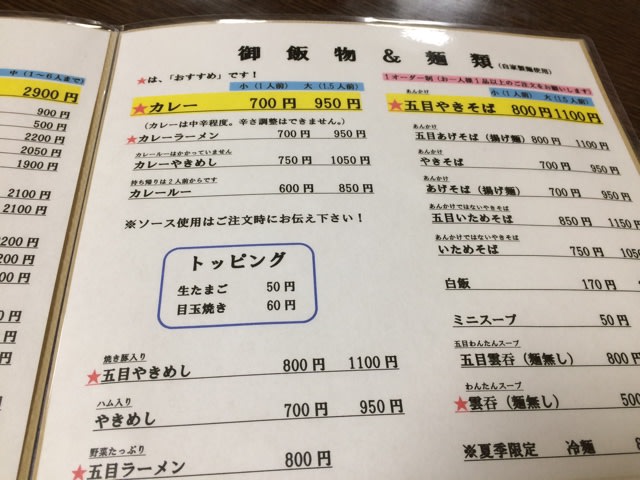 中（1～6人まで）
2900円
900円
500円
2200円
2050円
1900円
2100円
2100円
御飯物＆麺類（自家製麺使用）
★は、「おすすめ」です！
小（1人前）　大（1.5人前）
★カレー　700円　950円
（カレーは中辛程度。辛さ調整はできません。）
★カレーラーメン　700円　950円
カレールーはかかっていません
カレーやきめし　750円　1050円
持ち帰りは2人前からです
カレールー　600円　850円
※ソース使用はご注文時にお伝え下さい！
トッピング
生たまご　50円
目玉焼き　60円
焼き豚入り
★五目やきめし　800円　1100円
ハム入り
やきめし　700円　950円
野菜たっぷり
★五目ラーメン　800円
1オーダー制（お一人様1品以上のご注文をお願いします
小（1人前）　大（1.5人前）
あんかけ
★五目やきそば　800円1100円
あんかけ
五目あげそば（揚げ麺）800円　1100円
あんかけ
やきそば　700円　950円
あんかけ
あげそば（揚げ麺）700円　950円
あんかけではないやきそば
五目いためそば　850円　1150円
あんかけではないやきそば
いためそば　750円　1050
白飯　170円
ミニスープ　50円
五目わんたんスープ
五目雲呑（麺無し）　800円
わんたんスープ
★雲呑（麺無し）　500
※夏季限定　冷麺